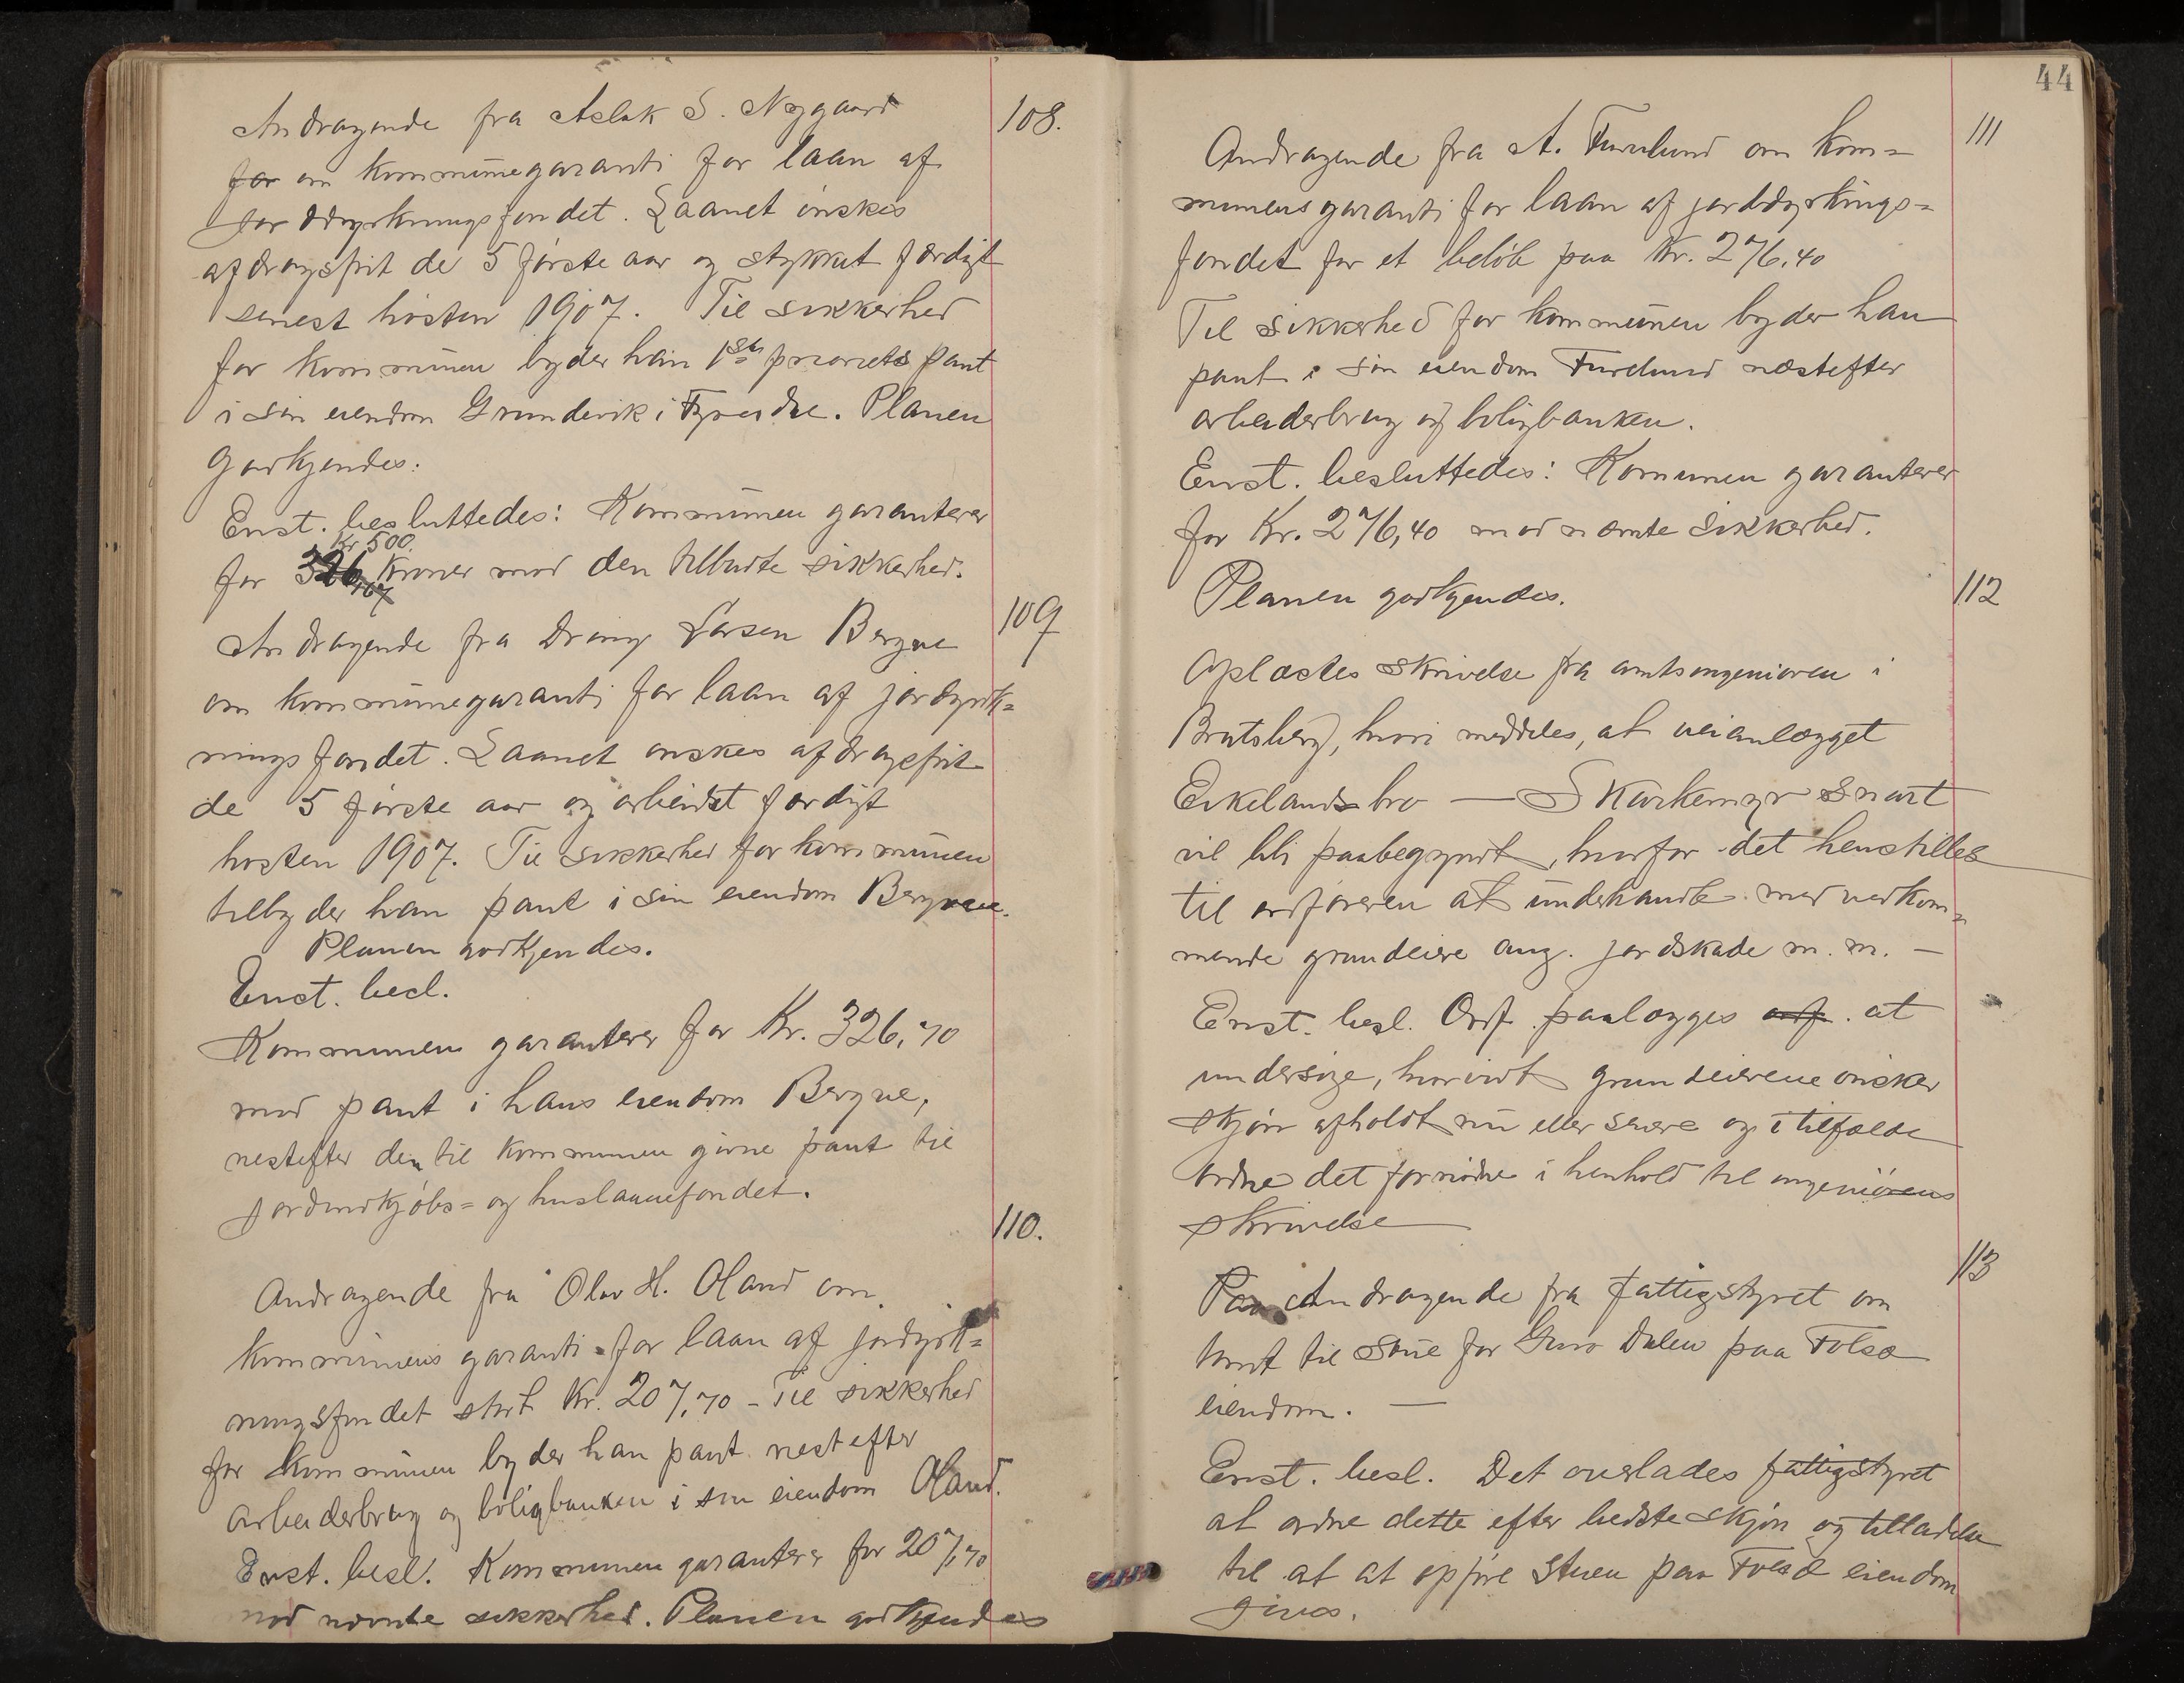 108.
Andragende fra Aslak S. Nygaard
for om kommunegaranti for laan af
jorddyrkningsfondet. Laanet ønskes
afdragsfrit de 5 første aar og stykket færdigt
senest høsten 1907. Til sikkerhed
for kommunen byder han 1ste prioritets pant
i sin eiendom Grundevik i Fyresdal. Planen
godkjendes.
Enst. besluttedes: Kommunen garanterer
Kr 500.
for 326,07 Kroner mod den tilbudte sikkerhed.
109
Andragende fra Dreng Larsen Bergne
om kommunegaranti for laan af jordyrk=
ningsfondet. Laanet ønskes afdragsfrit
de 5 første aar og arbeidet færdigt
høsten 1907. Til sikkerhed for kommunen
tilbyder han pant i sin eiendom Bergne.
Planen godkjendes.
Enst. besl.
Kommunen garanterer for Kr. 326,70
mod pant i hans eiendom Bergne,
nestefter den til kommunen givne pant til
jordindkjøbs= og huslaanefondet.
110.
Andragende fra Olav H. Oland om
kommunens garanti for laan af jordyrk=
ningsfondet stort Kr. 207,70 - Til sikkerhed
for kommunen byder han pant nestefter
arbeiderbrug og boligbanken i sin eiendom Oland.
Enst. besl. Kommunen garanterer for 207,70
mod nævnte sikkerhed. Planen godkjendes
44
111
Andragende fra A. Furulund om kom=
munens garanti for laan af jorddyrknings=
fondet for et beløb paa Kr. 276,40
Til sikkerhed for kommunen byder han
pant i sin eiendom Furulund næstefter
arbeiderbrug og boligbanken.
Enst. besluttedes: Komunen garanterer
for Kr. 276,40 mod nævnte sikkerhed.
Planen godkjendes.
112
Oplæstes skrivelse fra amtsingeniøren i
Bratsberg, hvori meddeles, at veianlægget
Eikelandsbro — Skarkemyr snart
vil bli paabegyndt, hvorfor det henstilles
til ordføreren at underhandle med vedkom=
mende grundeiere ang. jordskade m. m. —
Enst. besl. Ordf. paalægges ordf. at
undersøge, hvorvidt grundeierene ønsker
skjøn afholdt nu eller senere og i tilfælde
ordne det fornødne i henhold til ingeniørens
skrivelse
113
Paa Andragende fra fattigstyret om
tomt til stue for Guro Dalen paa Folsæ
eiendom. —
Enst. besl. Det overlades fattigstyret
at ordne dette efter bedste skjøn og tilladelse
til at at opføre stuen paa Folsæ eiendom
gives.